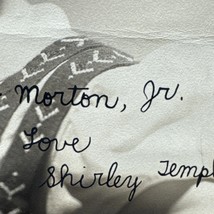 Morton, Jr.
Love
Shirley Templ